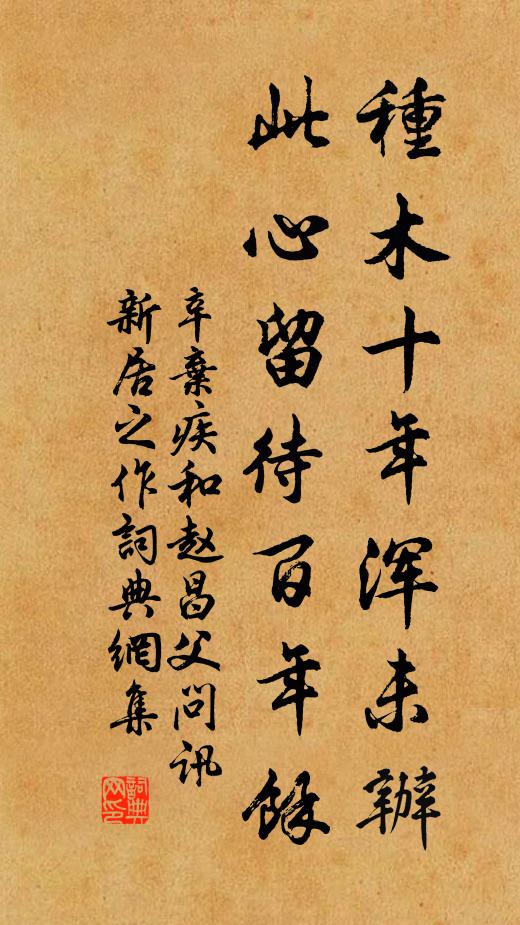 種木十年渾未辦
此心留待百年餘
辛棄疾和赵昌父問訊
新居之作詞典網集
詞典
网印